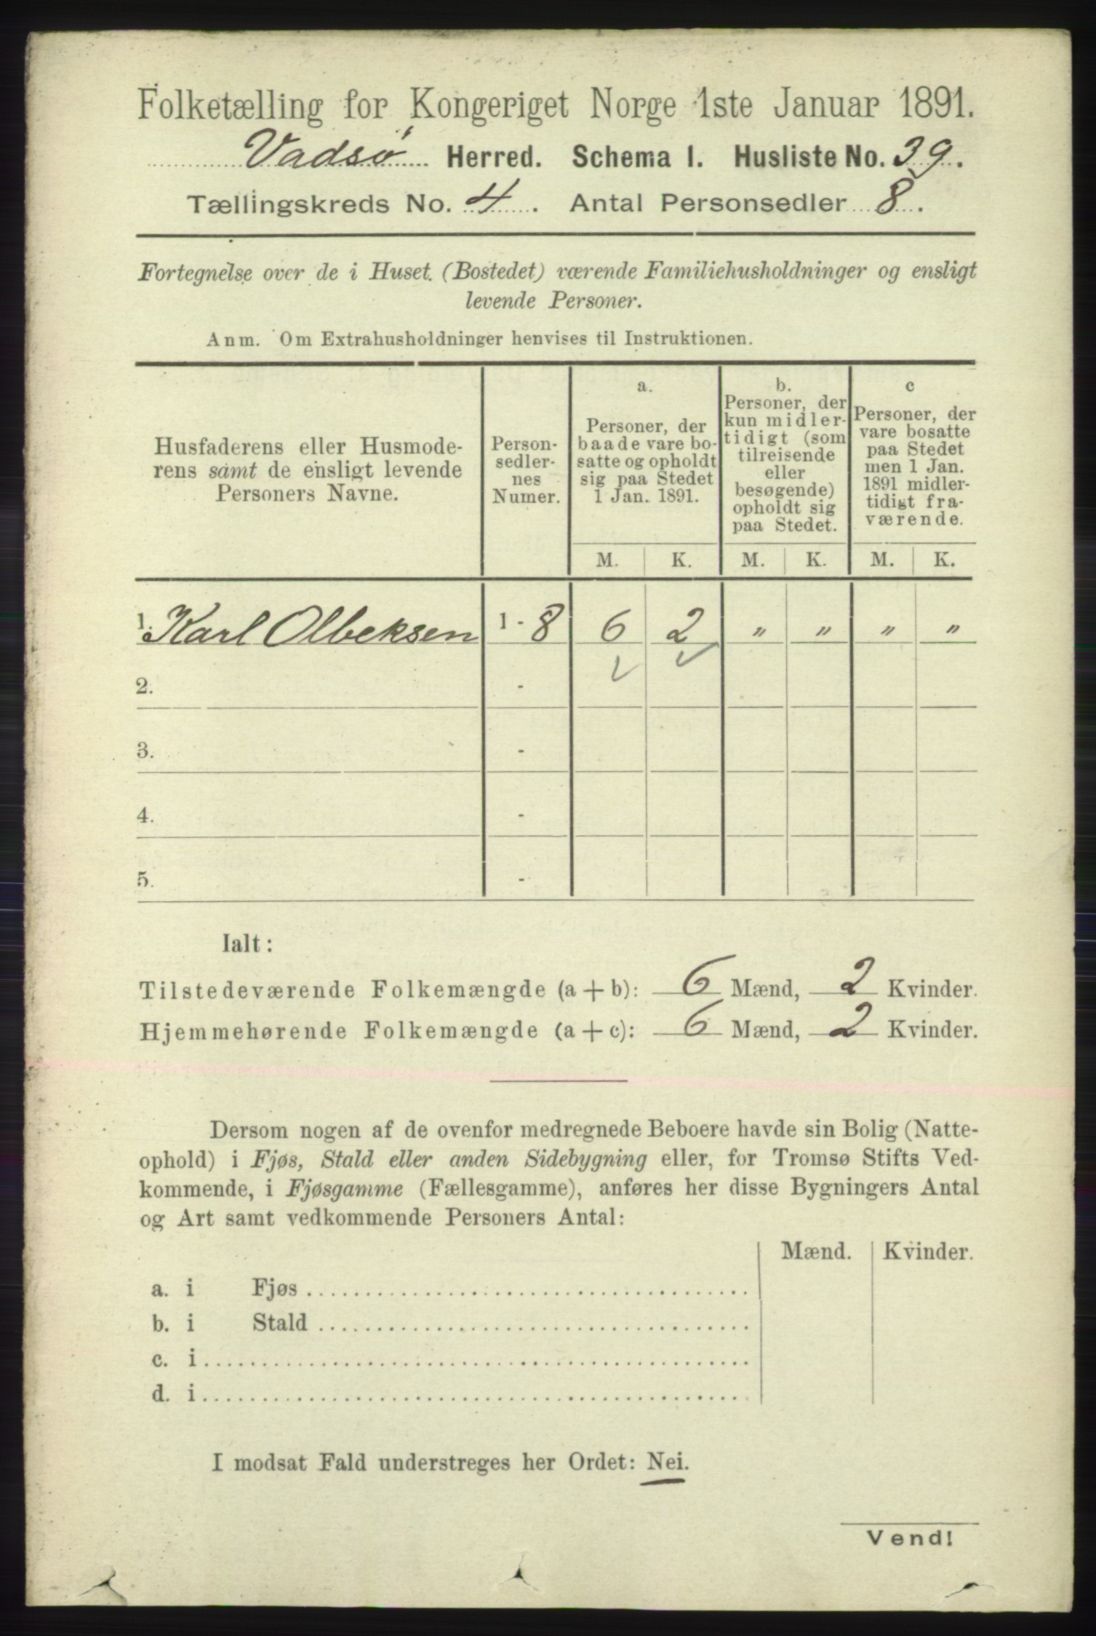 Folketælling for Kongeriget Norge 1ste Januar 1891.
Vadsø Herred. Schema I. Husliste No. 39.
Tællingskreds No. 4. Antal Personsedler 8.
Fortegnelse over de i Huset (Bostedet) værende Familiehusholdninger og ensligt
levende Personer.
Anm. Om Extrahusholdninger henvises til Instruktionen.
Husfaderens eller Husmode-
rens samt de ensligt levende
Personers Navne.
Person-
sedler-
nes
Numer.
a.
Personer, der
baade vare bo-
satte og opholdt
sig paa Stedet
1 Jan. 1891.
b.
Personer, der
kun midler-
tidigt (som
tilreisende
eller
besøgende)
opholdt sig
paa Stedet.
c
Personer, der
vare bosatte
paa Stedet
men 1 Jan.
1891 midler-
tidigt fra-
værende.
M. K. M. K. M. K.
1. Karl Olbeksen 1 - 8 6 2 " " " "
2. -
3. -
4. -
5. -
Ialt:
Tilstedeværende Folkemængde (a + b): 6 Mænd, 2 Kvinder.
Hjemmehørende Folkemængde (a + c): 6 Mænd, 2 Kvinder.
Dersom nogen af de ovenfor medregnede Beboere havde sin Bolig (Natte-
ophold) i Fjøs, Stald eller anden Sidebygning eller, for Tromsø Stifts Ved-
kommende, i Fjøsgamme (Fællesgamme), anføres her disse Bygningers Antal
og Art samt vedkommende Personers Antal:
Mænd. Kvinder.
a. i Fjøs
b. i Stald
c. i
d. i
I modsat Fald understreges her Ordet: Nei.
Vend!